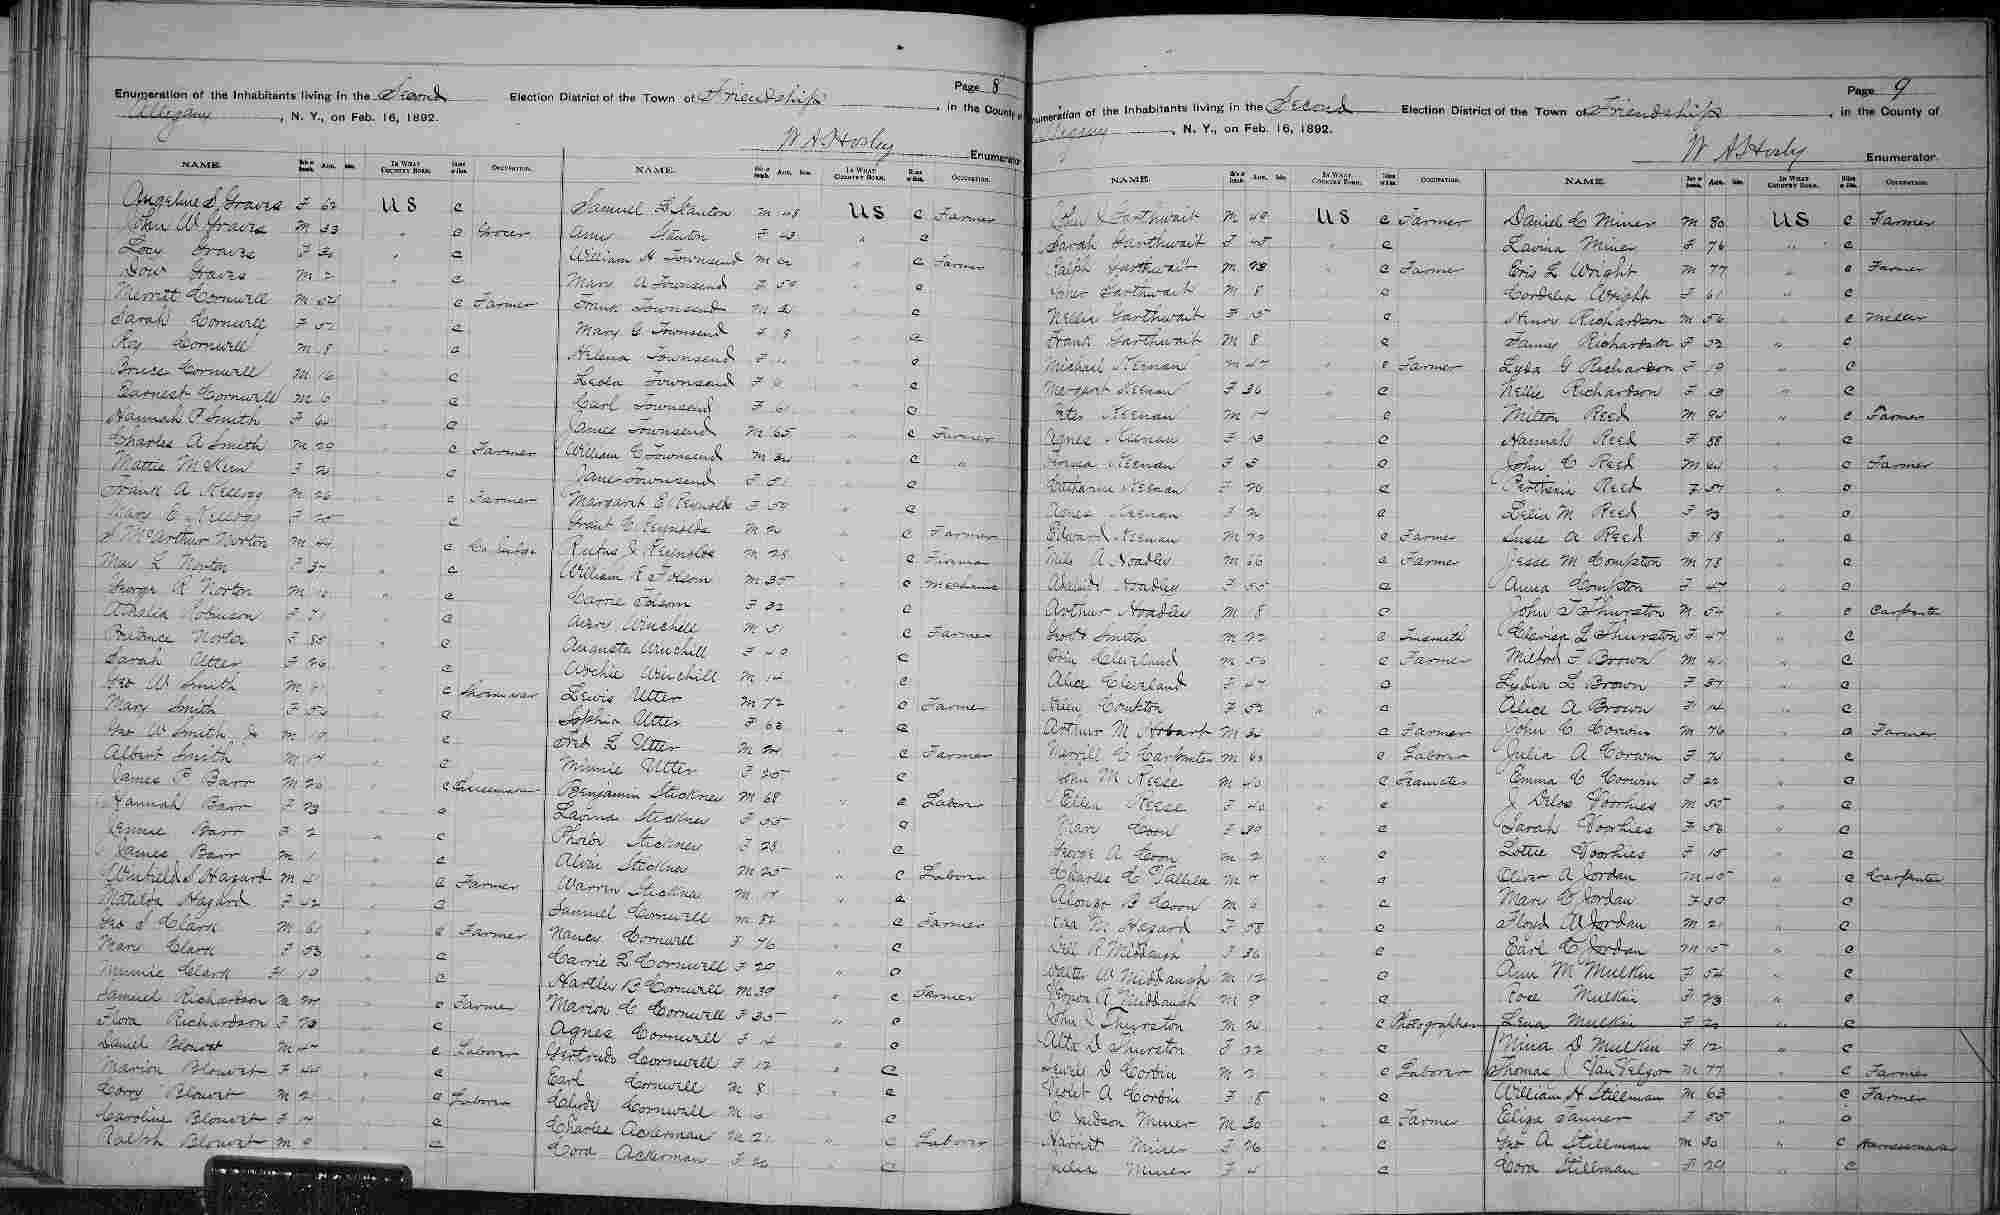 Page 8
Enumeration of the Inhabitants living in the Second Election District of the Town of Friendship, in the County of
Allegany, N. Y., on Feb. 16, 1892.
W A Hosley Enumerator
NAME. Sex Age. Mo. In What Country Born. Occupation.
Angeline S Graves F 62 US C
John W Graves M 33 " C Grocer
Lucy Graves F " C
Dow Graves M 2 " C
Merritt Cornwell M 54 " C Farmer
Sarah Cornwell F 52 " C
Roy Cornwell M 18 C
Bruce Cornwell M 16 C
Earnest Cornwell M C
Hannah P Smith F 64 C
Charles A Smith M 29 C Farmer
Mattie McKern F C
Frank A Kellogg M 26 C Farmer
Mary E Kellogg F 25 C
S McArthur Norton M 44 C Co Judge
May L Norton F C
George R Norton M C
Athalia Robinson F 71 C
Prudence Norton F 85 C
Sarah Utter F 26 C
Geo W Smith M C
Mary Smith F C
Geo W Smith Jr M 19 C
Albert Smith M 17 C
James P Barr M 26 C
Hannah Barr F 23 C
Jennie Barr F 2 C
James Barr M 1 C
Winfield S Hazard M C Farmer
Matilda Hazard F C
Geo S Clark M 61 C Farmer
Mary Clark F 53 C
Minnie Clark F 19 C
Samuel Richardson M C Farmer
Flora Richardson F 23 C
Daniel Blowet M 47 C Laborer
Marion Blowet F 44 C
Corry Blowet M 21 C Laborer
Caroline Blowet F C
Ralph Blowet M 9 C
NAME. Age. Mo. In What Country Born. Occupation.
Samuel L Stanton M 48 US C Farmer
Amy Stanton F 43 " C
William H Townsend M C Farmer
Mary A Townsend F 59 C
Frank Townsend M C
Mary C Townsend F 18 C
Helena Townsend F C
Leola Townsend F C
Carl Townsend F 61 C
James Townsend M 65 C Farmer
William C Townsend M C "
Jane Townsend F 51 C
Margaret E Reynolds F 59
Grant C Reynolds M C Farmer
Rufus J Reynolds M 28 C Fireman
William E Folsom M 35 C Mechanic
Carrie Folsom F 32 C
Avery Winchell M 51 C Farmer
Augusta Winchill F 49 C
Archie Winchill M 14 C
Lewis Utter M 72 C Farmer
Sophia Utter F 68 C
Fred L Utter M 24 C Farmer
Minnie Utter F 25 C
Benjamin Stickney M 68 C Labor
Lavina Stickney F 55 C
Phebe Stickney F 28 C
Alvin Stickney M 25 C Laborer
Warren Stickney M 17 C
Samuel Cornwell M 82 C Farmer
Nancy Cornwell F 76 C
Carrie L Cornwell F 29 C
Hartley B Cornwell M 39 C Farmer
Marion C Cornwell F 35 C
Agnes Cornwell F 14 C
Gertrude Cornwell F 12 C
Earl Cornwell M 8 C
Clyde Cornwell M C
Charles Ackerman M 21 C Laborer
Cora Ackerman F C
Page 9
Enumeration of the Inhabitants living in the Second Election District of the Town of Friendship, in the County of
Allegany, N. Y., on Feb. 16, 1892.
W A Hosley Enumerator.
NAME. Age. Mo. In What Country Born. Occupation.
John Garthwait M 49 US C Farmer
Sarah Garthwait F 45 C
Ralph Garthwait M 23 C Farmer
Garthwait M 8 C
Nellie Garthwait F 15 C
Frank Garthwait M 8 C
Michail Keenan M 47 C Farmer
Margaret Keenan F 36 C
Peter Keenan M 17 C
Agnes Keenan F 13 C
Keenan F 3 C
Catharine Keenan F 70 C
Agnes Keenan F 2 C
Edward Keenan M C Farmer
Milo A Hoadley M 66 C Farmer
Adelaide Hoadley F 55 C
Arthur Hoadley M 18 C
Smith M 22 C Tinsmith
John Cleveland M 50 C Farmer
Alice Cleveland F 47 C
Conkton F 52 C
Arthur M Hobart M C Farmer
Merrill C Carpenter M 63 C Laborer
John M Reese M 40 C Teamster
Ellen Reese F 40 C
Mary Coon F 39 C
George A Coon M C
Charles C Tallila M C
Alonzo B Coon M C
M Hazard F 58 C
Dell R Middaugh F 36 C
Walter W Middaugh M 12 C
Vernon A Middaugh M 9 C
John J Thurston M C Photographer
Alta D Thurston F 22 C
Jewell D Corbin M C Laborer
Violet A Corbin F 18 C
C Judson Miner M 30 C Farmer
Harriet Miner F 26 C
Julia Miner F 4 C
NAME. Age. Mo. In What Country Born. Occupation.
Daniel C Miner M 80 US C Farmer
Lavina Miner F 76 " C
Eric L Wright M 77 " C Farmer
Cordelia Wright F 61 " C
Henry Richardson M 56 C Miller
Fanny Richardson F 52 C
Lyda G Richardson F 19 C
Nellie Richardson F 13 C
Milton Reed M 84 C Farmer
Hannah Reed F 88 C
John C Reed M 64 C Farmer
Parthenia Reed F 57 C
Lelia M Reed F 23 C
Susie A Reed F 18 C
Jesse M Compton M 78 C
Anna Compton F 47 C
John T Thurston M 54 C Carpenter
L Thurston F 47 C
Milford F Brown M C
Lydia L Brown F 37 C
Alice A Brown F 14 C
John C Corwin M 76 C Farmer
Julia A Corwin F C
Emma C Corwin F 22 C
J Delos Voorhies M 55 C
Sarah Voorhies F 56 C
Lottie Voorhies F 15 C
Oliver A Jordan M 45 C Carpenter
Mary C Jordan F 39 C
Floyd A Jordan M 21 C
Earl C Jordan M 15 C
Ann M Mulkin F 54 C
Rose Mulkin F 23 C
Lena Mulkin F C
Nina D Mulkin F 12 C
Thomas J VanVelzor M 77 C Farmer
William H Stillman M 63 C Farmer
Eliza Tanner F 55 C
Geo A Stillman M 30 C Harnessmaker
Cora Stillman F 29 C